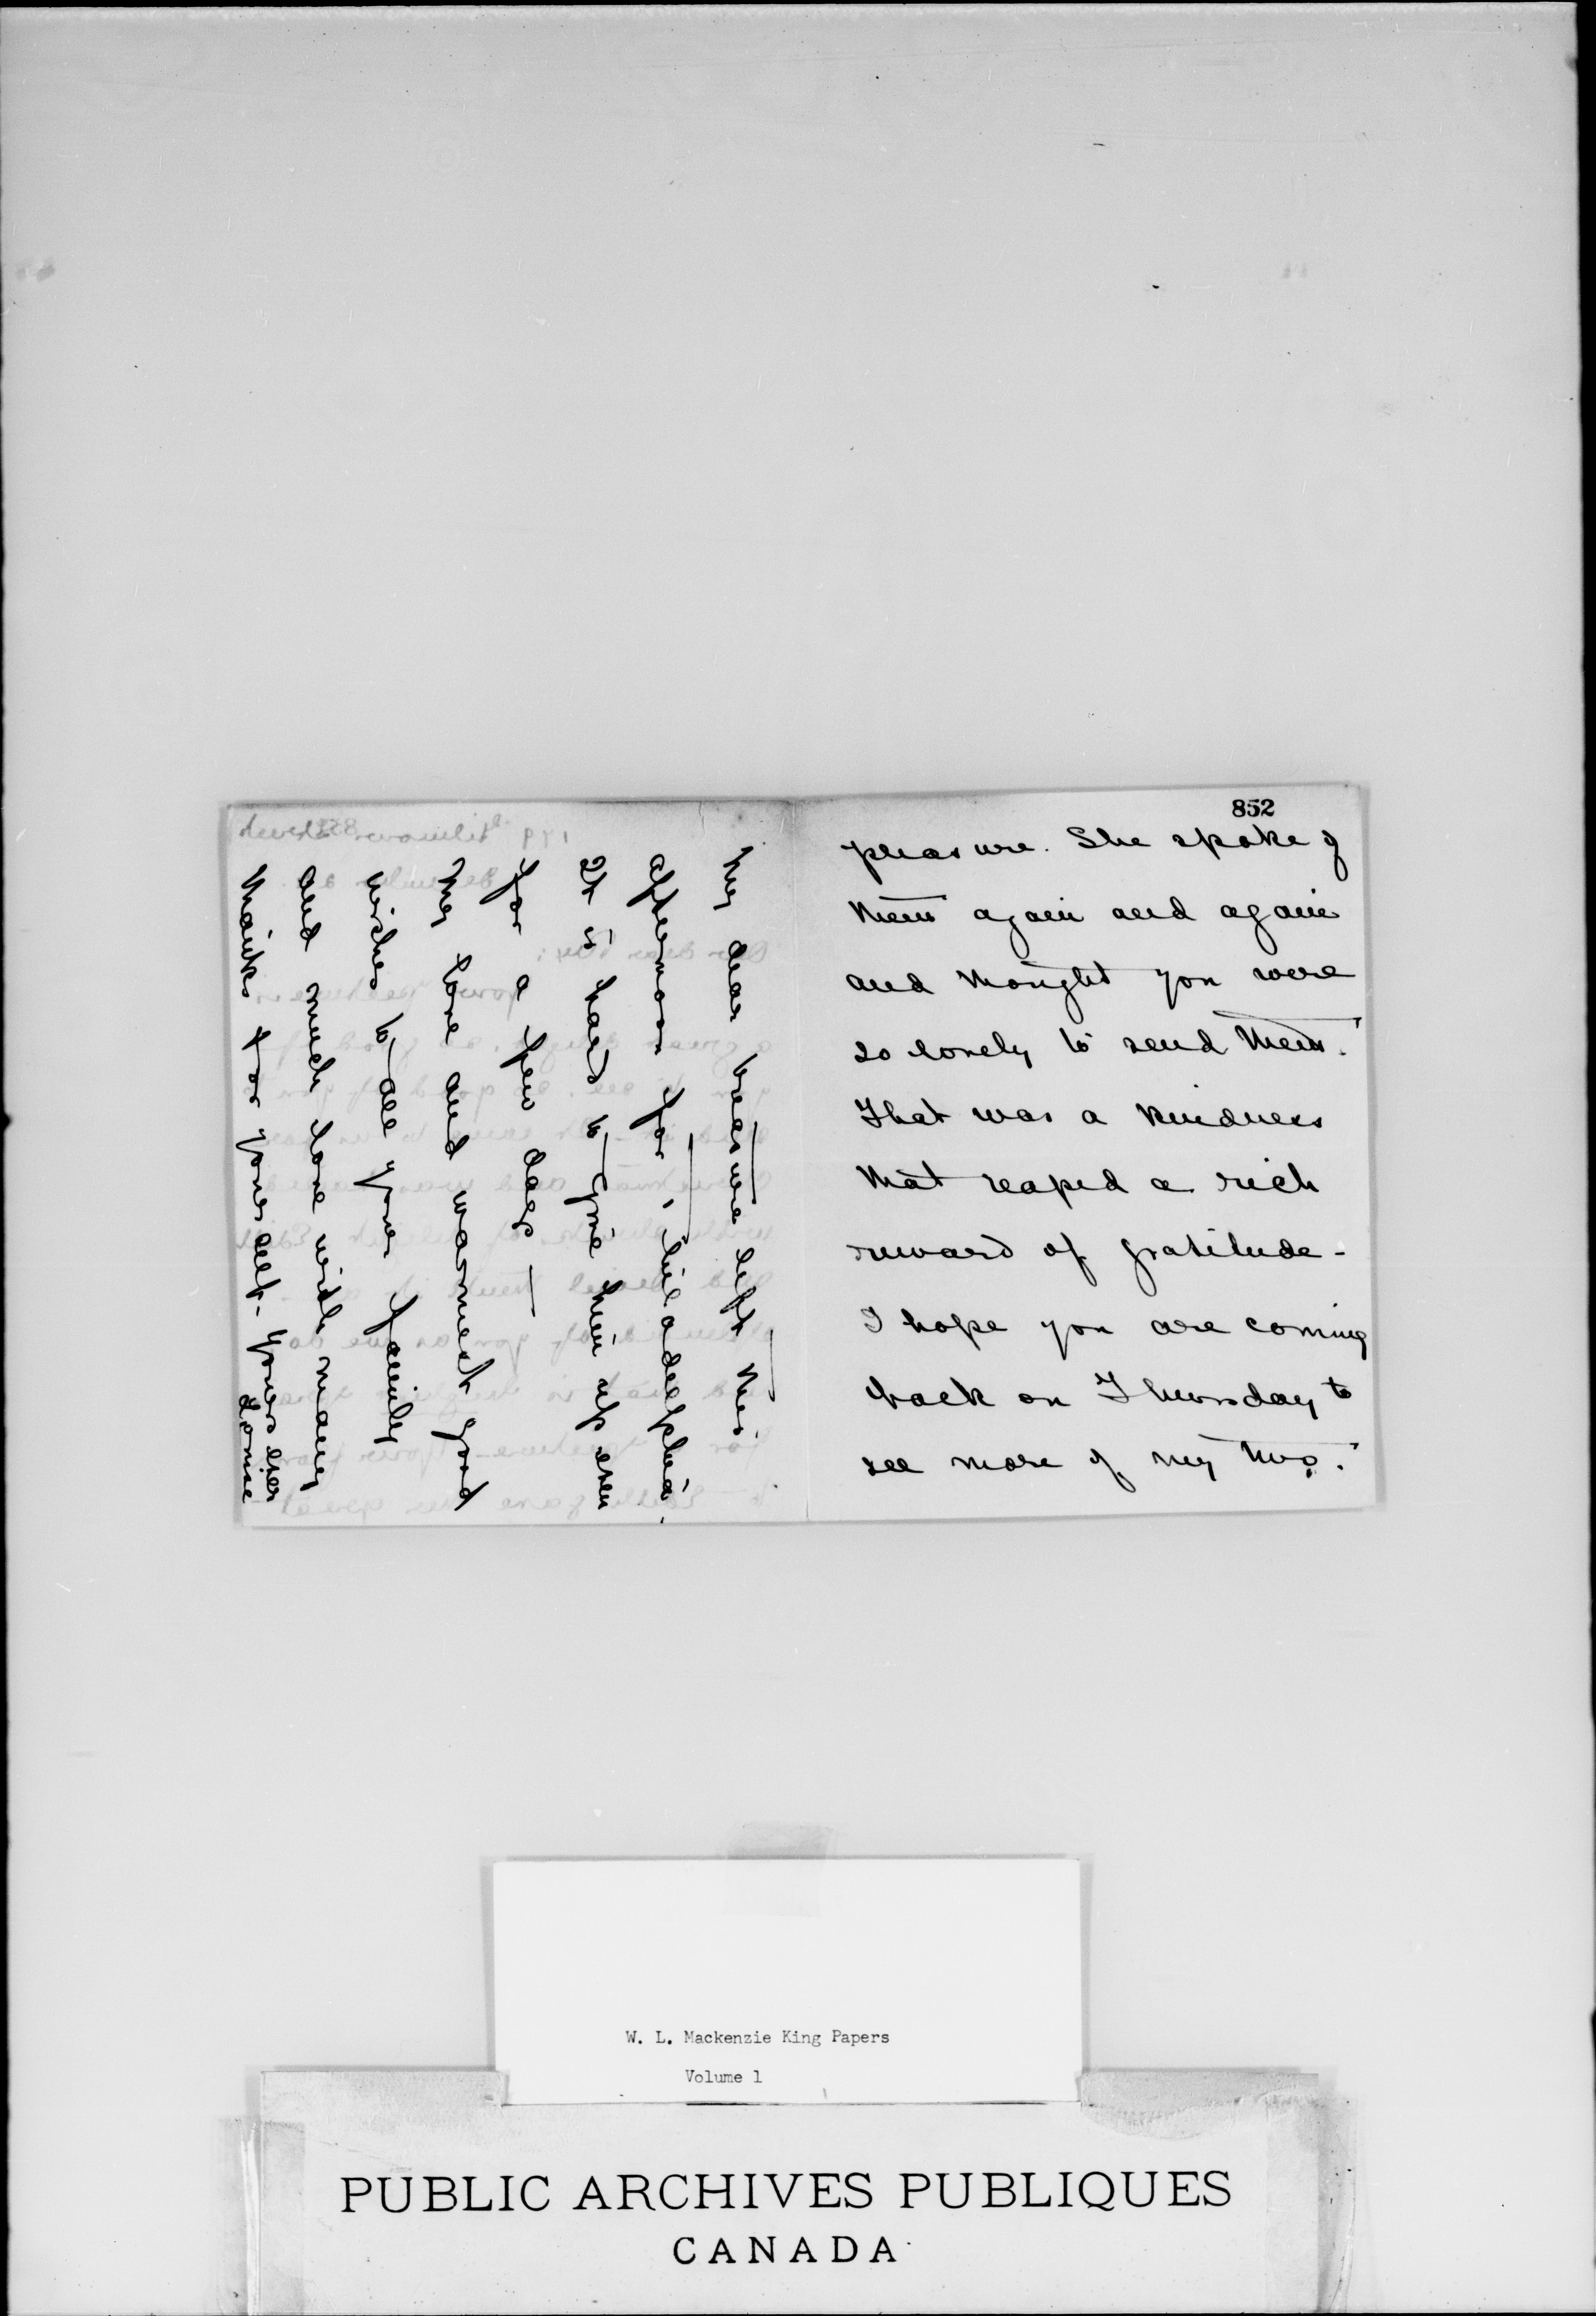 852
pleasure. She spoke of
them again and again
and thought you were
so lovely to send them.
That was a kindness
that reaped a rich
reward of gratitude -
I hope you are coming
back on Thursday to
see more of my two.
My dear treasure left this
afternoon for Philadelphia.
It is hard to give him up even
for a few days -
My love and warmest good
wishes to all your family
and much love with many
thanks for yourself. yours ever
W. L. Mackenzie King Papers
Volume 1
PUBLIC ARCHIVES PUBLIQUES
CANADA